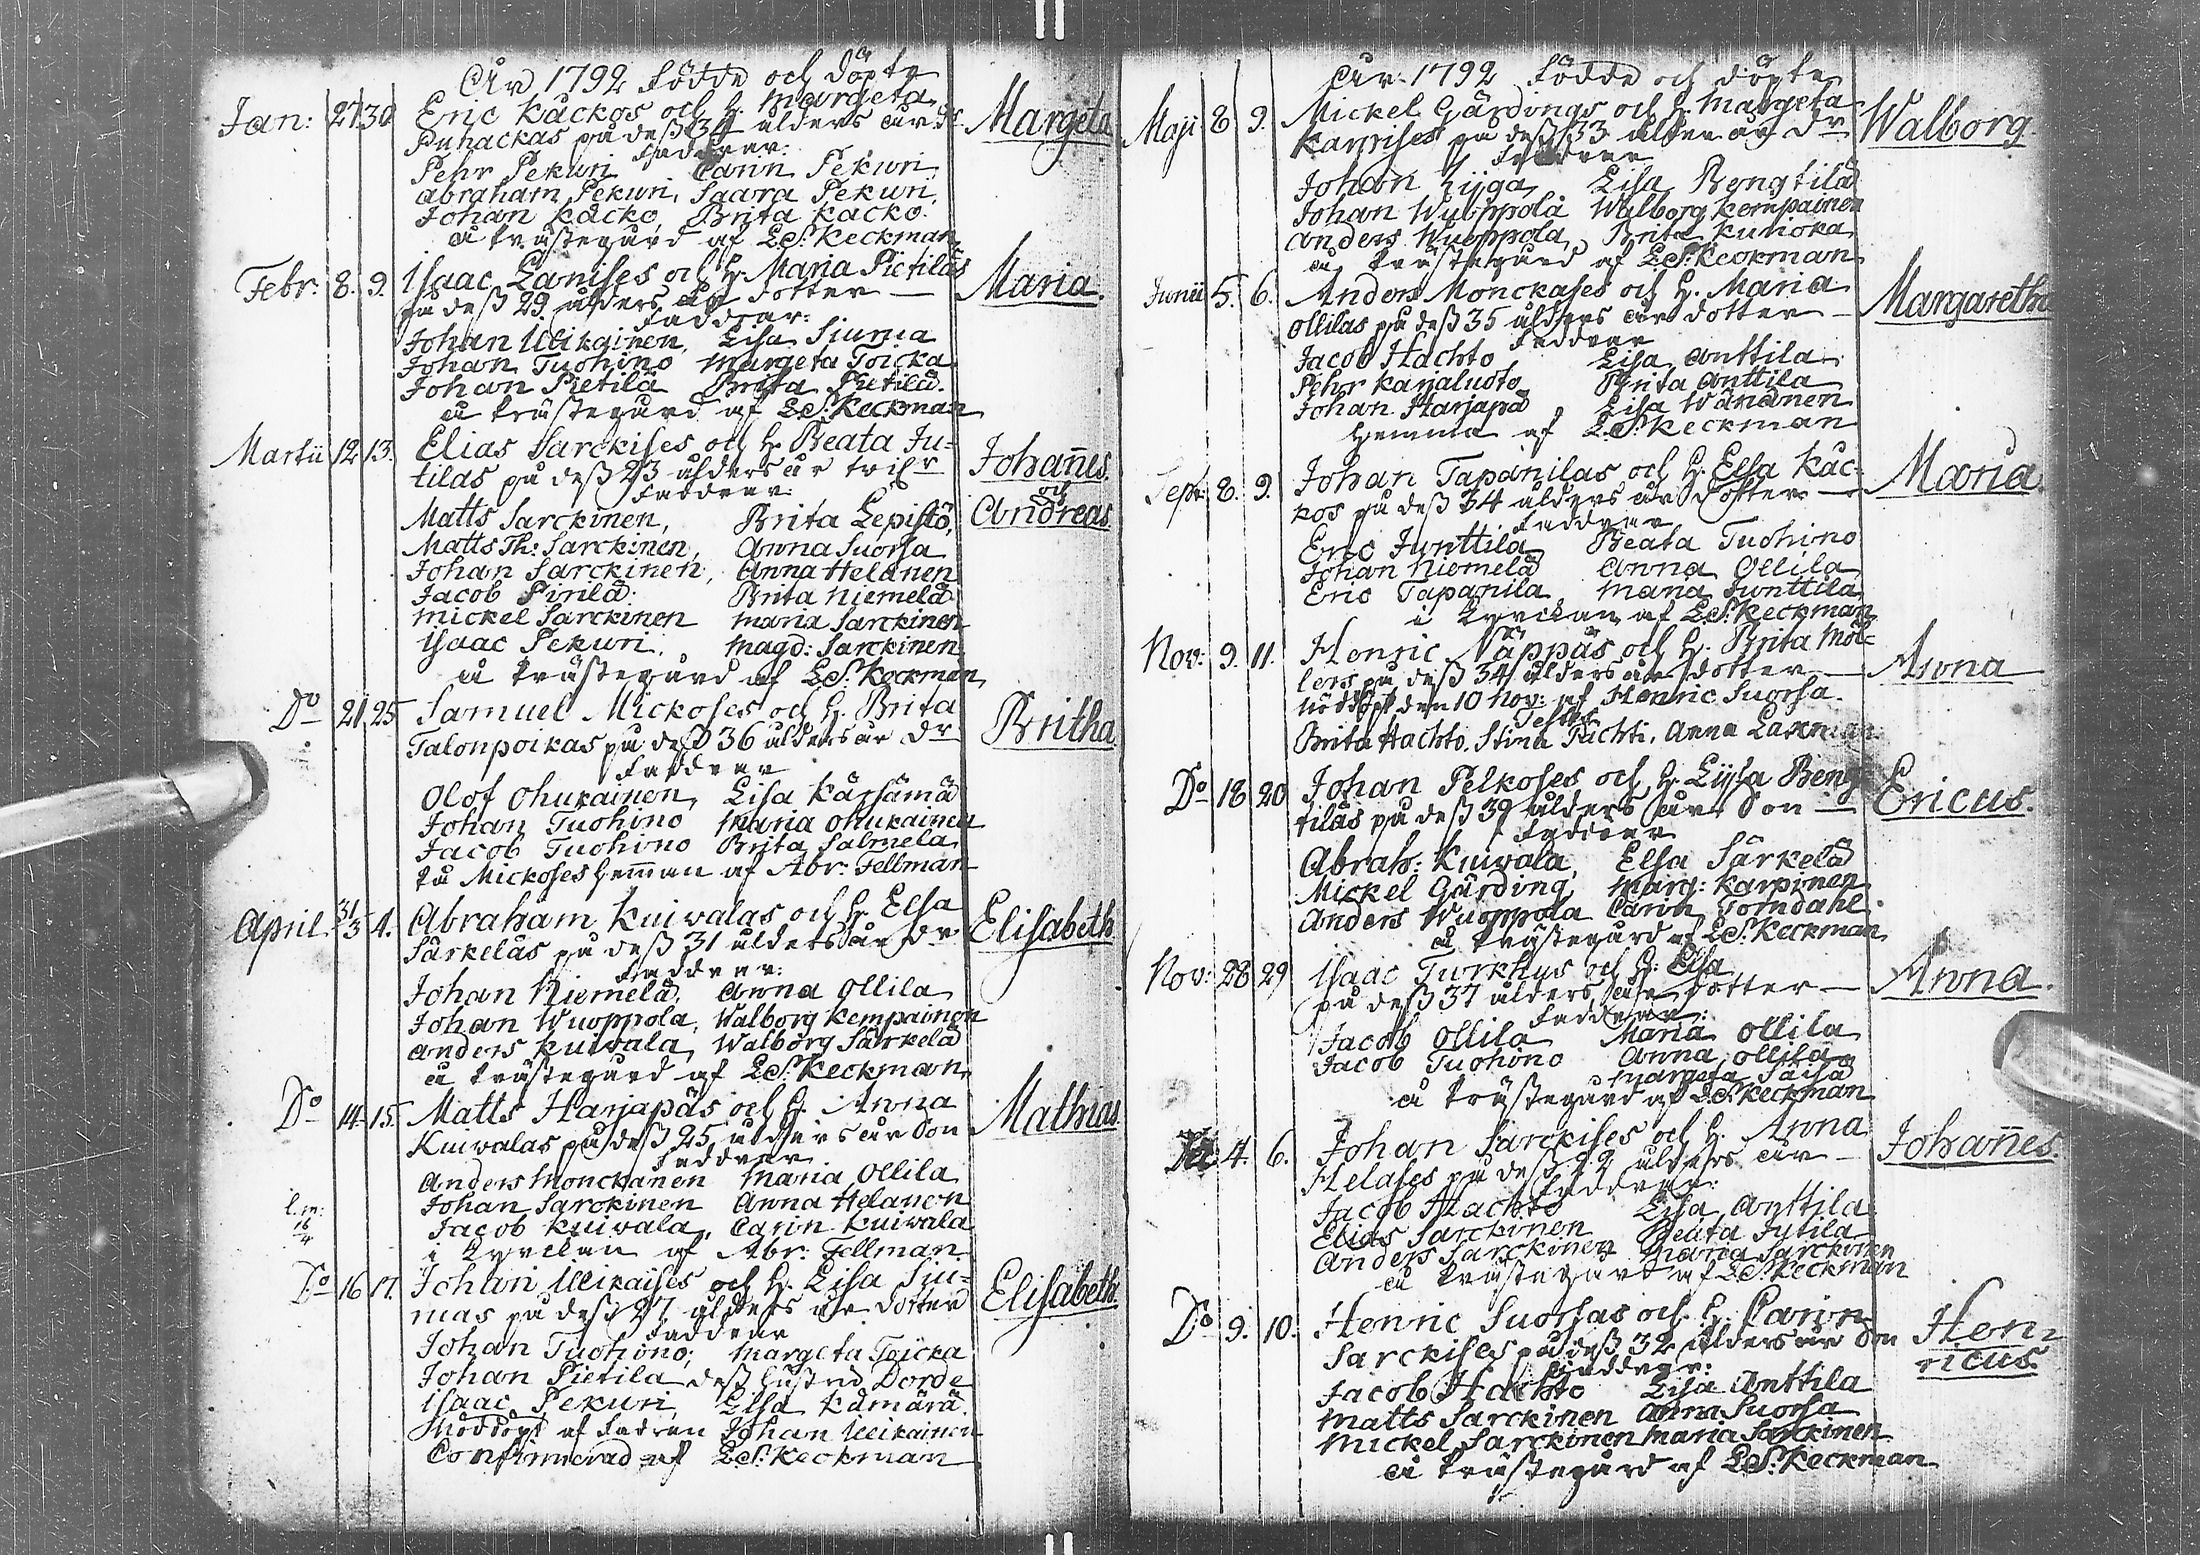 År 1792 födde och döpte
Jan: 27 30 Eric Kackos och h. Margeta Margeta
Puhackas på desß 34 ålders år dr
Faddrar:
Pehr Pekuri Carin Pekuri
Abraham Pekuri, Saara Pekuri,
Johan Kacko, Brita Kacko.
å Prästegård af E. S. Keckman
Febr: 8. 9. Isaac Lanises och h. Maria Pietiläs Maria.
på desß 29 ålders år dotter —
Faddrar:
Johan Mikainen, Lisa Siuma
Johan Tuohino Margeta Toicka
Johan Pietilä Brita Pietilä.
å Prästegård af E. S. Keckman
Martii 12 13. Elias Sarckises och h. Beata Ju- Johan̄es
tilas på desß 23 ålders år tvil:r och
Faddrar: Andreas
Matts Sarckinen, Brita Lepistö,
Matts Th: Sarckinen, Anna Suorsa
Johan Sarckinen, Anna Helanen
Jacob Pirilä. Brita Niemelä
Mickel Sarckinen Maria Sarckinen
Isaac Pekuri, Magd: Sarckinen
å Prästegård af E. S. Keckman
Do 21 25 Samuel Mickoses och h. Brita Britha
Talonpoikas på desß 36 ålders år dr
Faddrar
Olof Ohukainen, Lisa Kärsämä
Johan Tuohino Maria Ohukainen
Jacob Tuohino Brita Salmela
På Mickoses hem̄an af Abr: Fellman
April 31/3 4. Abraham Kuivalas och h. Elsa Elisabeth
Särkeläs på desß 31 ålders år dr
Faddrar:
Johan Niemelä, Anna Ollila
Johan Wuoppola, Walborg Kempainen
Anders Kuivala, Walborg Särkelä
å Prästegård af E. S. Keckman
Do 14 15. Matts Harjapäs och h. Anna Mathias
Kuivalas på desß 25 ålders år Son
Faddrar
Anders Monckanen Maria Ollila
Johan Sarckinen Anna Helanen
Jacob Kuivala, Carin Kuivala
i Kyrckan af Abr: Fellman
Do 16 17. Johan Mikaises och h. Lisa Siu- Elisabeth
mas på desß 27 ålders år dotter
Faddrar
Johan Tuohino, Margeta Toicka
Johan Pietilä desß hustru Dorde
Isaac Pekuri, Elsa Kämärä
Nöddöpt af Fadren Johan Mikainen
Confirmerad af E. S. Keckman
År 1792 födde och döpte
Maji 8 9. Mickel Gärdings och h. Margeta Walborg
Karpises på desß 33 ålders år dr
Faddrar
Johan Lijga, Lisa Bengtilä
Johan Wuoppola Walborg Kempainen
Anders Wuoppola, Brita Kuhoka
å Prästegård af E. S. Keckman
Junii 5. 6. Anders Monckases och h. Maria Margareth
Ollilas på desß 35 ålders år dotter —
Faddrar
Jacob Hachto Lisa Anttila
Pehr Karjaluoto Brita Anttila
Johan Harjapä Lisa Wänänen
hemma af E. S. Keckman
Sept: 8. 9. Johan Tapanilas och h. Elsa Kac- Maria
kos på desß 34 ålders år dotter —
Faddrar
Eric Junttila Beata Tuohino
Johan Niemelä Anna Ollila
Eric Tapanila, Maria Junttila
i Kyrckan af E. S. Keckman
Nov: 9. 11. Henric Näppäs och h. Brita Möl- Anna
lers på desß 34 ålders år dotter —
Nöddöpt den 10 Nov: af Henric Suorsa
Testes
Brita Hachto, Stina Pächti, Anna Lasxman
Do 18 20 Johan Pelkoses och h. Lijsa Beng- Ericus.
tiläs på desß 39 ålders år Son —
Faddrar
Abrah: Kuivala, Elsa Särkelä
Mickel Gärding, Marg: Karpinen
Anders Wuoppola Carin Torndahl
å Prästegård af E. S. Keckman
Nov: 28 29 Isaac Turkkys och h. Elsa Anna.
på desß 37 ålders år dotter —
Faddrar:
Jacob Ollila Maria Ollila
Jacob Tuohino Anna Ollila
Margeta Säisä
å Prästegård af E. S. Keckman
4. 6. Johan Sarckises och h. Anna Johan̄es
Helases på desß 22 ålders år —
Faddrar:
Jacob Hachto Lisa Anttila
Elias Sarckinen Beata Jytila
Anders Sarckinen Maria Sarckinen
å Prästegård af E. S. Keckman
Do 9. 10. Henric Suorsas och h. Carin Hen-
Sarckises på desß 32 ålders år Son ricus
Faddrar:
Jacob Hachto Lisa Anttila
Matts Sarckinen Anna Suorsa
Mickel Sarckinen Maria Sarckinen
å Prästegård af E. S. Keckman